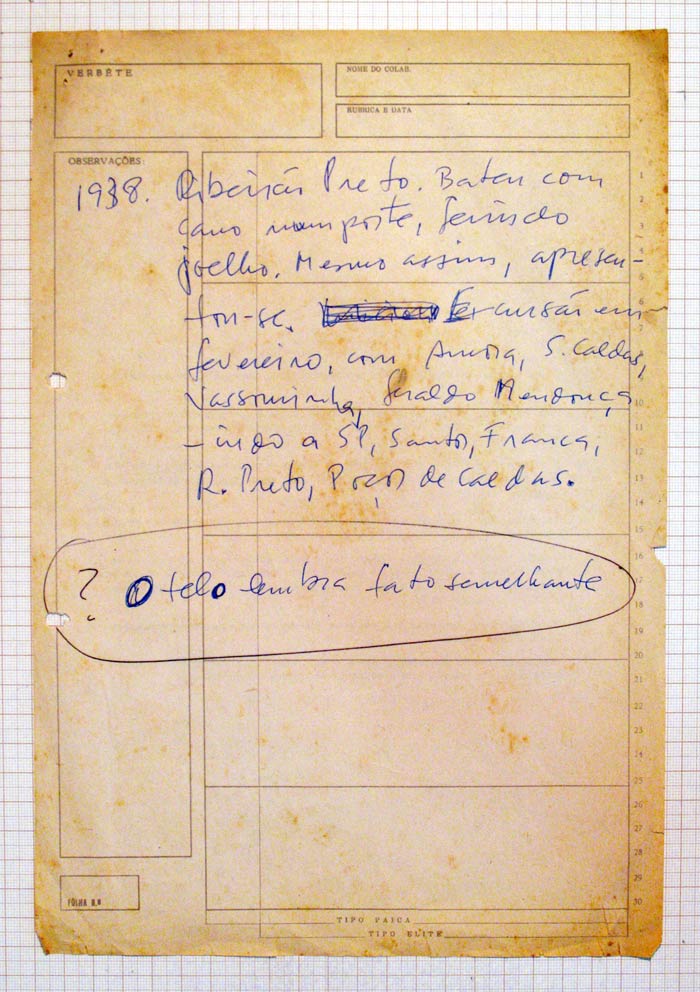 VERBÊTE
NOME DO COLAB.
RUBRICA E DATA
OBSERVAÇÕES:
1938. Ribeirão Preto. Bateu com
carro num poste, ferindo
joelho. Mesmo assim, apresen-
tou-se. Excursão em
fevereiro, com Aurora, S. Caldas,
Vassourinha, Geraldo Mendonça
- indo a SP, Santos, Franca,
R. Preto, Poços de Caldas.
? Otelo lembra fato semelhante
1
2
3
4
5
6
7
8
9
10
11
12
13
14
15
16
17
18
19
20
21
22
23
24
25
26
27
28
29
30
FÔLHA N.º
TIPO PAICA
TIPO ELITE